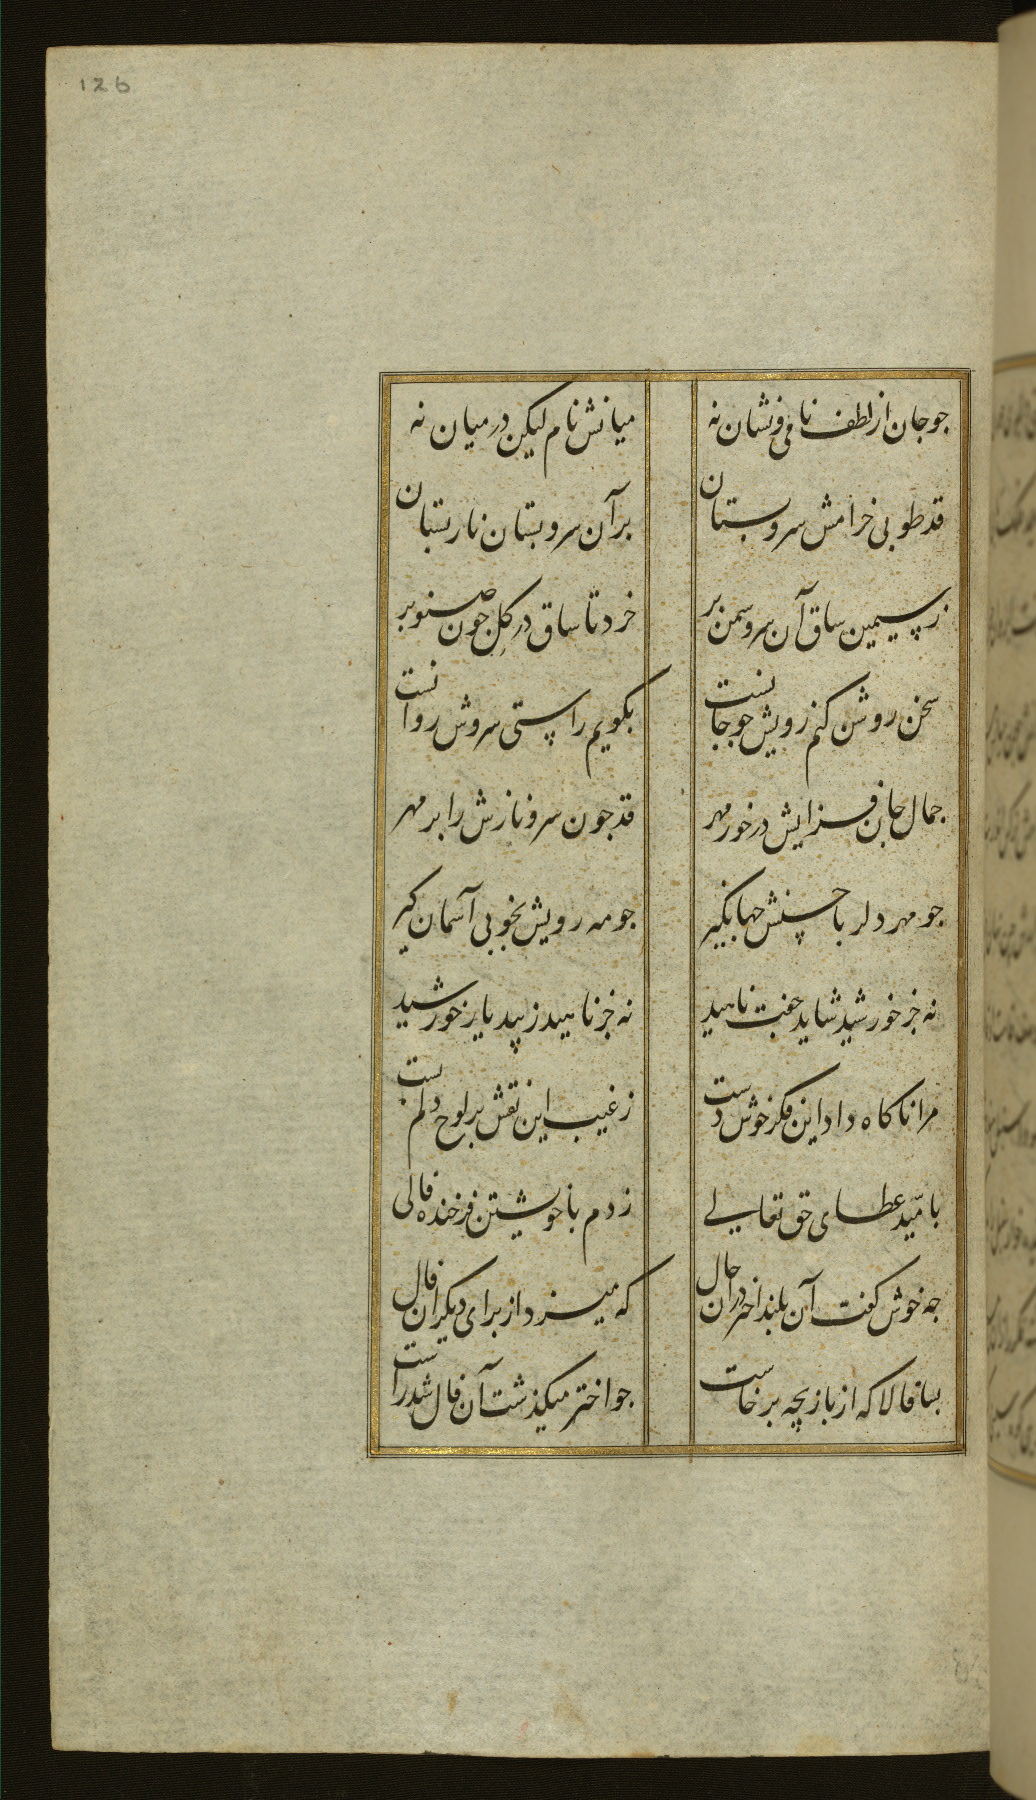 126
جو جان از لطف نافی و نشان نه
میانش نام لیکن در میان نه
قد طوبی خرامش سرو بستان
بر آن سرو بستان نار بستان
ز سیمین ساق آن سرو سمن بر
خرد تا ساق در کل جون صنوبر
سخن روشن کنم رویش جو جانست
بکویم راستی سروش روانست
جمال جان فزایش در خور مهر
قد جون سرو نازش را بر مهر
جو مهر دلربا حسنش جهانکیر
جو مه رویش بخوبی آسمان کیر
نه جز خورشید شاید جفت ناهید
نه جز ناهید زیبد یار خورشید
مرا ناکاه داد این فکر خوش دست
ز غیب این نقش بر لوح دلم بست
بامّید عطای حق تعالی
زدم با خویشتن فرخنده فالی
جه خوش کفت آن بلند اختر در آن حال
که میزد از برای دیکران فال
بسا فالا که از بازیچه برخاست
جو اختر میکذشت آن فال شد راست